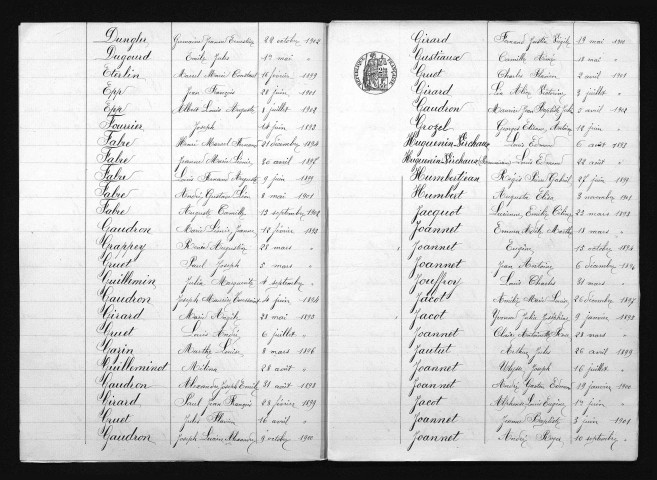 Dunglu Germaine 22 octobre 1902
Dugourd Emile Jules 1er mai "
Eterlin Marcel Marie Constant 16 février 1899
Epp Jean François 28 juin 1901
Epp Albert Louis Auguste 8 juillet 1902
Fournier Joseph 14 juin 1892
Fabre Henri Marcel 21 décembre 1894
Fabre Jeanne Marie Louise 20 avril 1897
Fabre Louis Fernand Auguste 9 juin 1899
Fabre André Gustave Léon 8 mai 1901
Fabre Auguste Camille 13 septembre 1902
Gaudron Marie Jeanne 12 février 1893
Grappey Augustine 28 mars "
Gruet Paul Joseph 5 mars "
Guillemin Julia Marguerite 4 septembre "
Gaudron Joseph Maurice 4 juin 1894
Girard Marie 23 mai 1895
Gruet Louis André 6 juillet "
Gazin Marthe Louise 8 mars 1896
Guilleminot Mélina 28 août "
Gaudron Alexandre Joseph Emile 31 août 1898
Girard Paul Jean François 28 février 1899
Gruet Jules Flavien 16 avril "
Gaudron Joseph Lucien 9 octobre 1900
REPUBLIQUE FRANÇAISE
Girard Fernand 19 mai 1900
Gustiaux Camille 18 mai "
Gruet Charles Flavien 2 avril 1901
Girard Léa 3 juillet "
Gaudron Maurice Jean Baptiste Jules 5 avril 1902
Grozel Georges 12 juin "
Huguenin-Virchaux Louis Edmond 6 août 1893
Huguenin-Virchaux Louis Edmond 22 août "
Humbertian Régis Paul Gabriel 27 juin 1899
Humbert Augusta Elisa 3 novembre 1901
Jacquot Lucienne Emilie 23 mars 1893
Joannet Emma Marthe 18 mars "
Joannet Eugène 15 octobre 1894
Joannet Jean Antoine 6 décembre 1894
Jouffroy Louis Charles 31 mars "
Jacot Marie Louise 26 décembre 1897
Jacot Yvonne Julie Joséphine 9 janvier 1898
Joannet Claire Antoinette Rose 28 mars "
Jautut Arthur Jules 26 avril 1899
Joannet Ulysse Joseph 16 juillet "
Joannet André Gaston Edmond 19 janvier 1900
Jacot Alphonse Louis Eugène 1er juin "
Joannet Jeanne 3 juin 1901
Joannet André 10 septembre "